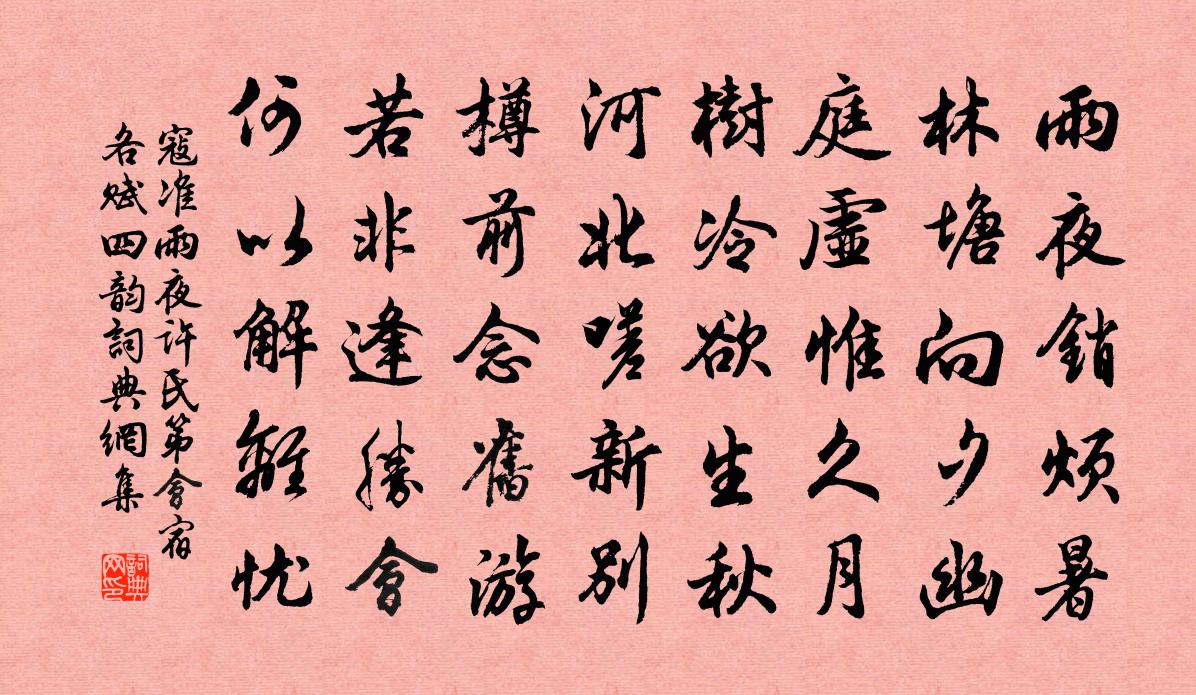 雨夜銷煩暑
林塘向夕幽
庭虛惟久月
樹冷欲生秋
河北嗟新別
樽前念舊游
若非逢勝會
何以解離忧
寇准雨夜許氏第會宿
各赋四韵詞典網集
詞典网印